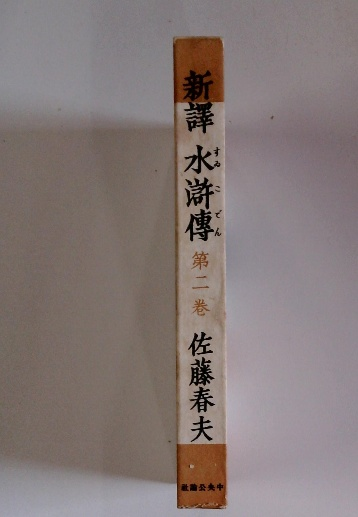 新譯 水滸傳
すゐこでん
第二巻
佐藤春夫
中央公論社